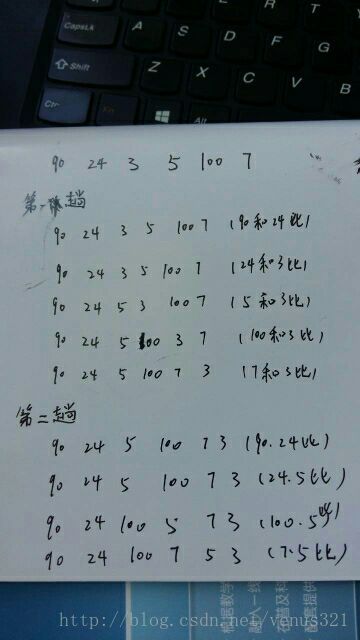 CapsLk A S D F G H
Shift Z X C V
Ctr Fn Alt
90 24 3 5 100 7
第一趟
90 24 3 5 100 7 (90和24比)
90 24 3 5 100 7 (24和3比)
90 24 5 3 100 7 (5和3比)
90 24 5 100 3 7 (100和3比)
90 24 5 100 7 3 (7和3比)
第二趟
90 24 5 100 7 3 (90.24比)
90 24 5 100 7 3 (24.5比)
90 24 100 5 7 3 (100.5比)
90 24 100 7 5 3 (7.5比)
http://blog.csdn.net/venus321